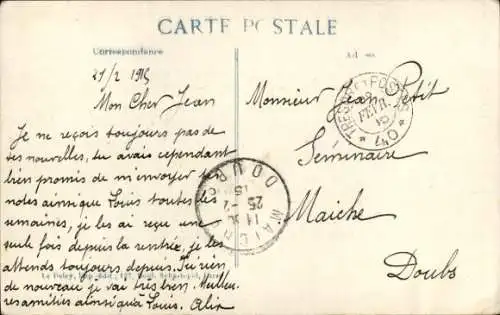 CARTE POSTALE
Correspondance
21/2 1915
Mon Cher Jean
Je ne reçois toujours pas de
tes nouvelles, tu avais cependant
bien promis de m'envoyer tes
notes ainsi que Louis toutes les
semaines, je les ai reçu une
seule fois depuis la rentrée, je les
attends toujours depuis. J'ai rien
de nouveau je vais très bien. Meilleu-
res amitiés ainsi qu'à Louis. Alix
Monsieur Jean Petit
Séminaire
Maiche
Doubs
TRESOR ET POSTES
FEVR
15
MAICHE
DOUBS
25-2
15